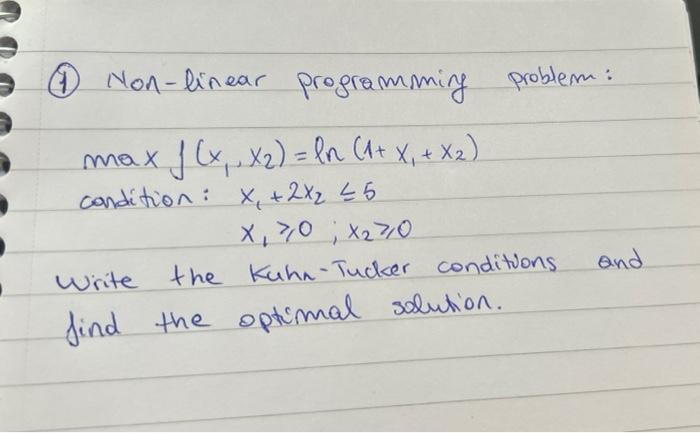 ① Non-linear programming problem:
max f(x₁, x₂) = ln (1+ x₁ + x₂)
condition: x₁ + 2x₂ ≤ 5
x₁ ≥ 0 ; x₂ ≥ 0
Write the Kuhn-Tucker conditions and
find the optimal solution.